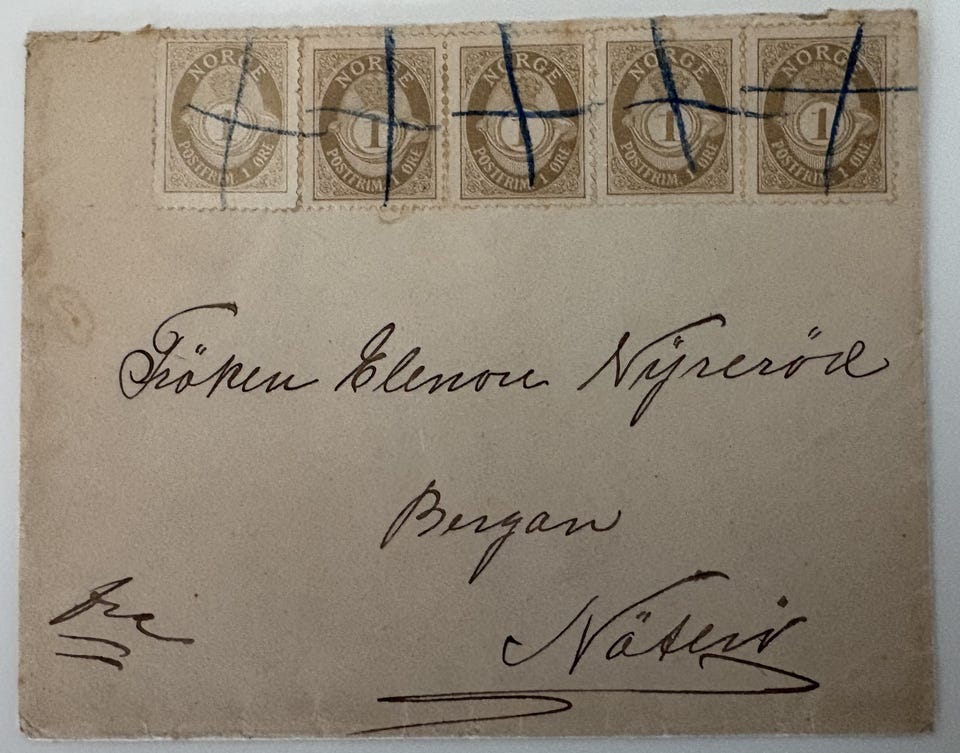 NORGE 1 POSTFRIM. 1 ØRE
NORGE 1 POSTFRIM. 1 ØRE
NORGE 1 POSTFRIM. 1 ØRE
NORGE 1 POSTFRIM. 1 ØRE
NORGE 1 POSTFRIM. 1 ØRE
Fröken Elenore Nÿreröd
Bergan
Nöterö